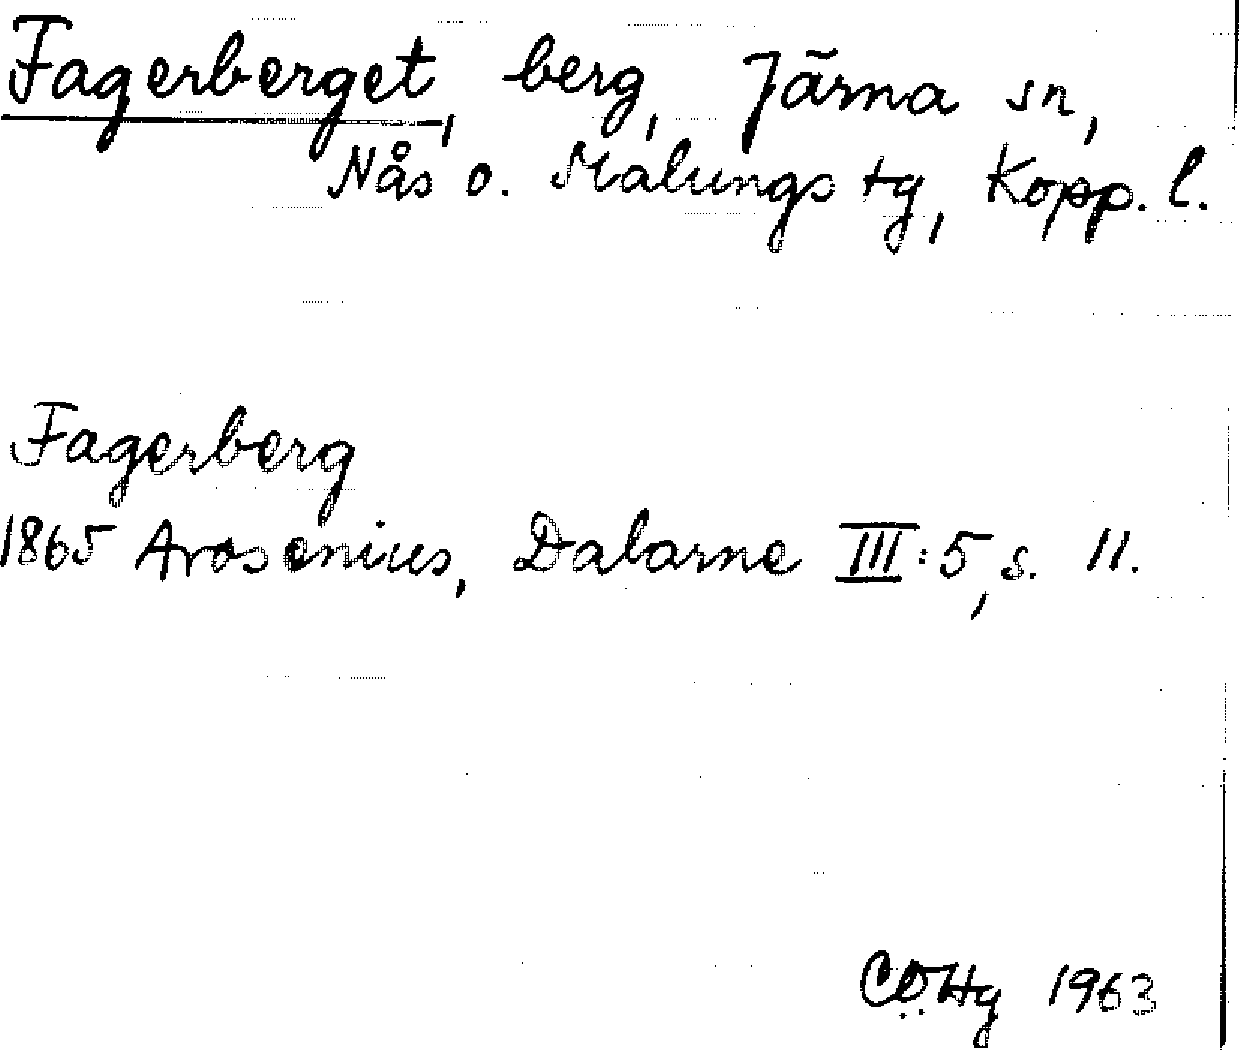 Fagerberget, berg, Järna sn,
Nås o. Malungs tg, Kopp. l.
Fagerberg
1865 Arosenius, Dalarne III:5, s. 11.
1963